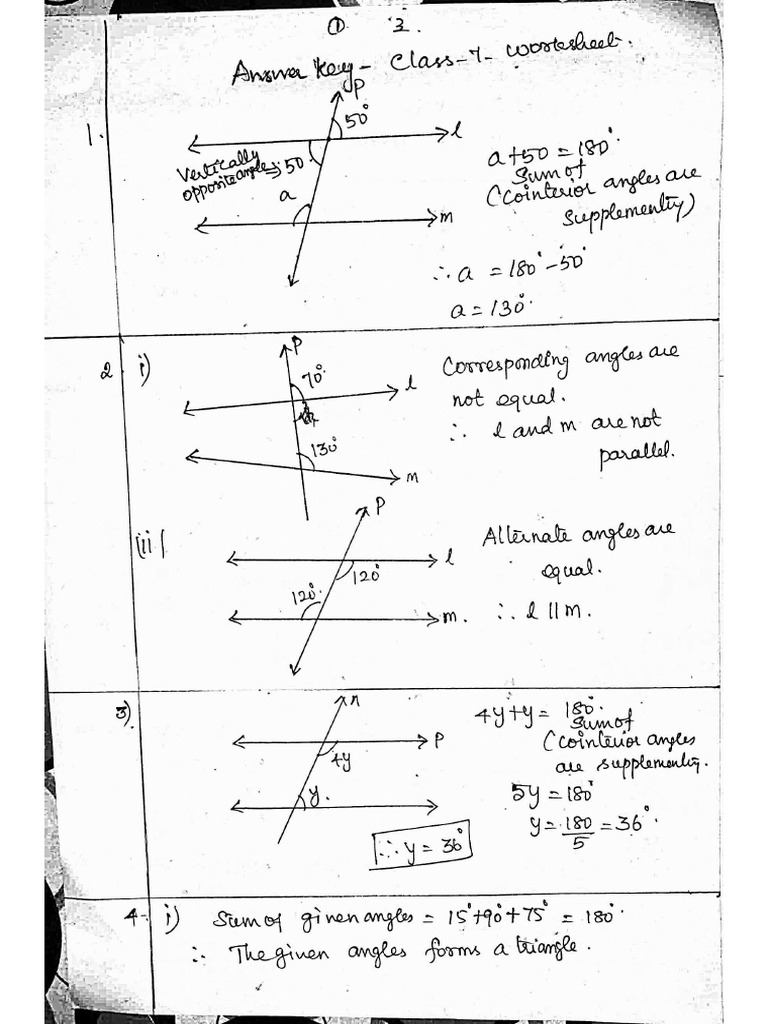 ① 3.
Answer Key - Class-7- Worksheet.
1.
P
50°
l
Vertically
opposite angles ⇒ 50°
a
m
a+50 = 180°
Sum of
(cointerior angles are
supplementry)
∴ a = 180° - 50°
a = 130°.
2 i)
P
70°
l
130°
m
Corresponding angles are
not equal.
∴ l and m are not
parallel.
(ii)
P
l
120°
120°
m.
Alternate angles are
equal.
∴ l || m.
3)
n
P
4y
y.
4y+y = 180°.
Sum of
(cointerior angles
are supplementry.
5y = 180°
y = 180/5 = 36°.
∴ y = 36°
4- i) Sum of given angles = 15°+90°+75° = 180°.
∴ The given angles forms a triangle.